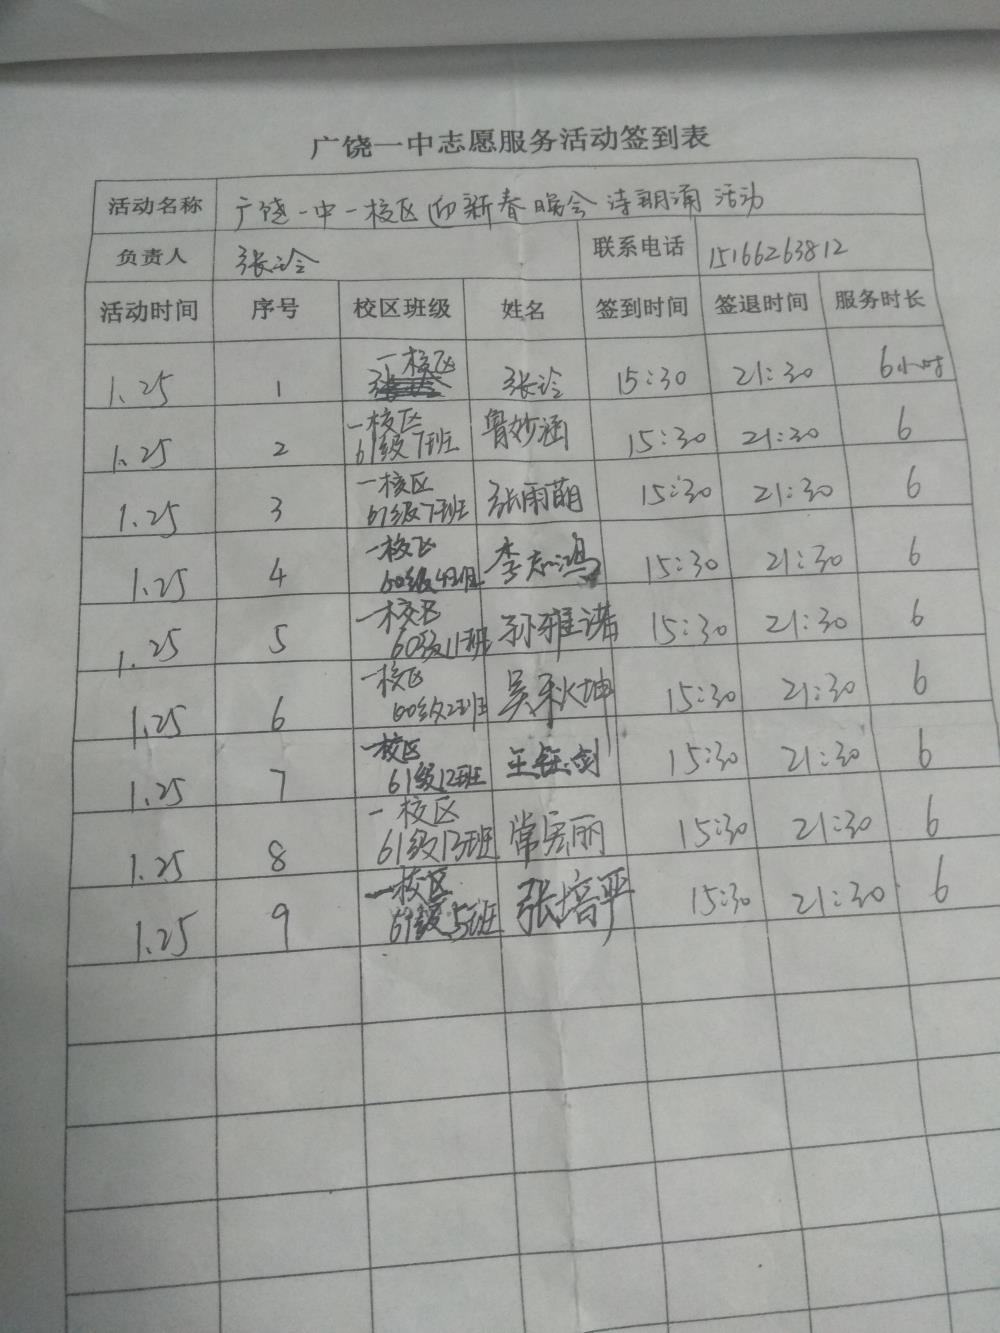 广饶一中志愿服务活动签到表
活动名称 广饶一中一校区迎新春晚会诗朗诵活动
负责人 张诊 联系电话 15166263812
活动时间 序号 校区班级 姓名 签到时间 签退时间 服务时长
1.25 1 一校区 15:30 21:30 6小时
1.25 2 一校区 61级7班 鲁妙涵 15:30 21:30 6
1.25 3 一校区 61级7班 张雨萌 15:30 21:30 6
1.25 4 一校区 60级4班 李志鸿 15:30 21:30 6
1.25 5 一校区 60级11班 孙雅诺 15:30 21:30 6
1.25 6 一校区 60级2班 吴秋坤 15:30 21:30 6
1.25 7 一校区 61级12班 王钰剑 15:30 21:30 6
1.25 8 一校区 61级13班 常宏丽 15:30 21:30 6
1.25 9 一校区 61级5班 张培严 15:30 21:30 6